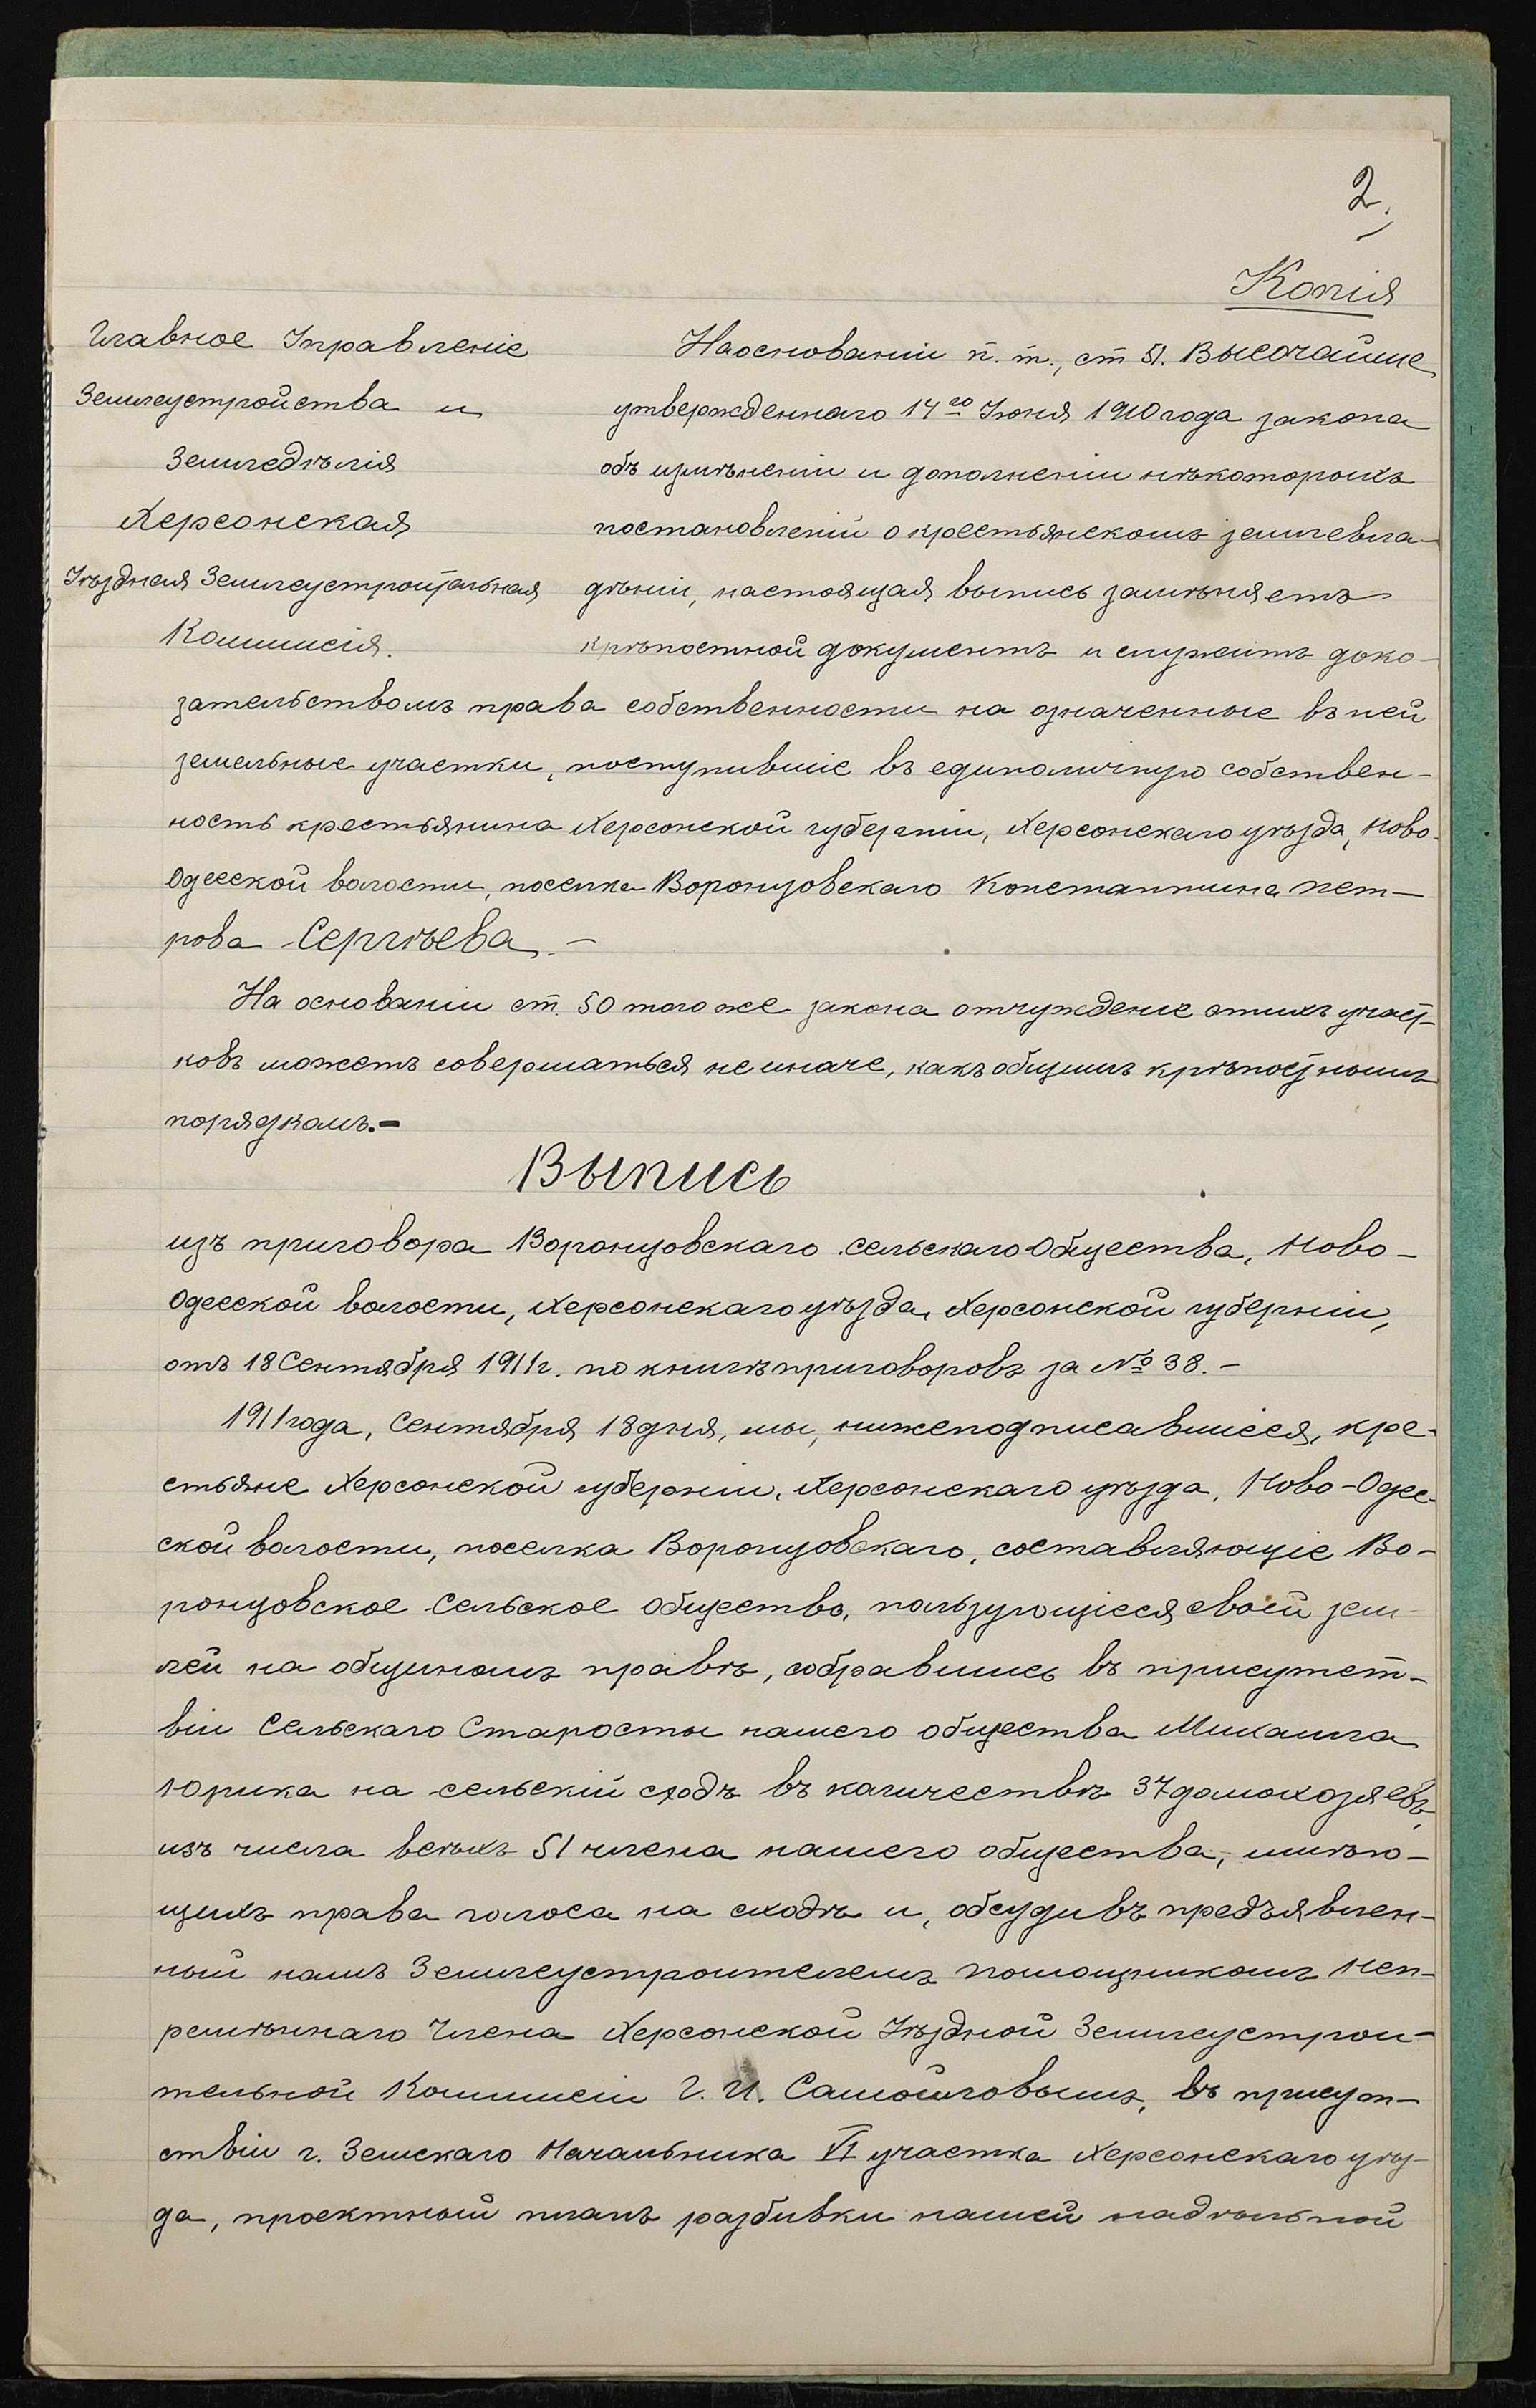 2
Копія
Главное Управленіе
Землеустройства и
Земледѣлія
Херсонская
Уѣздная Землеустроительная
Коммисія.
На основаніи п. т., ст 51. Высочайше
утвержденнаго 14го Іюня 1910 года закона
объ измѣненіи и дополненіи нѣкоторыхъ
постановленій о крестьянскомъ землевла-
дѣніи, настоящая выпись замѣняетъ
крѣпостной документъ и служитъ дока-
зательствомъ права собственности на означенные въ ней
земельные участки, поступившіе въ единоличную собствен-
ность крестьянина Херсонской губерніи, Херсонскаго уѣзда, Ново-
Одесской волости, поселка Воронцовскаго Константина Пет-
рова Сергѣева.-
На основаніи ст. 50 того же закона отчужденіе этихъ участ-
ковъ можетъ совершаться не иначе, какъ общимъ крѣпостнымъ
порядкомъ.-
Выпись
изъ приговора Воронцовскаго сельскаго Общества, Ново-
Одесской волости, Херсонскаго уѣзда, Херсонской губерніи,
отъ 18 Сентября 1911 г. по книгѣ приговоровъ за № 38.-
1911 года, Сентября 18 дня, мы, нижеподписавшіеся, кре-
стьяне Херсонской губерніи, Херсонскаго уѣзда, Ново-Одес-
ской волости, поселка Воронцовскаго, составляющіе Во-
ронцовское сельское общество, пользующіеся своей зем-
лей на общиномъ правѣ, собравшись въ присутст-
віи Сельскаго Старосты нашего общества Михаила
Юрика на сельскій сходъ въ количествѣ 37 домохозяевъ,
изъ числа всѣхъ 51 члена нашего общества, имѣю-
щихъ права голоса на сходѣ и, обсудивъ предъявлен-
ный намъ Землеустроителемъ Помощникомъ Неп-
ремѣннаго Члена Херсонской Уѣздной Землеустрои-
тельной Коммисіи Г. И. Самойловымъ, въ присут-
ствіи г. Земскаго Начальника VI участка Херсонскаго уѣз-
да, проектный планъ разбивки нашей надѣльной